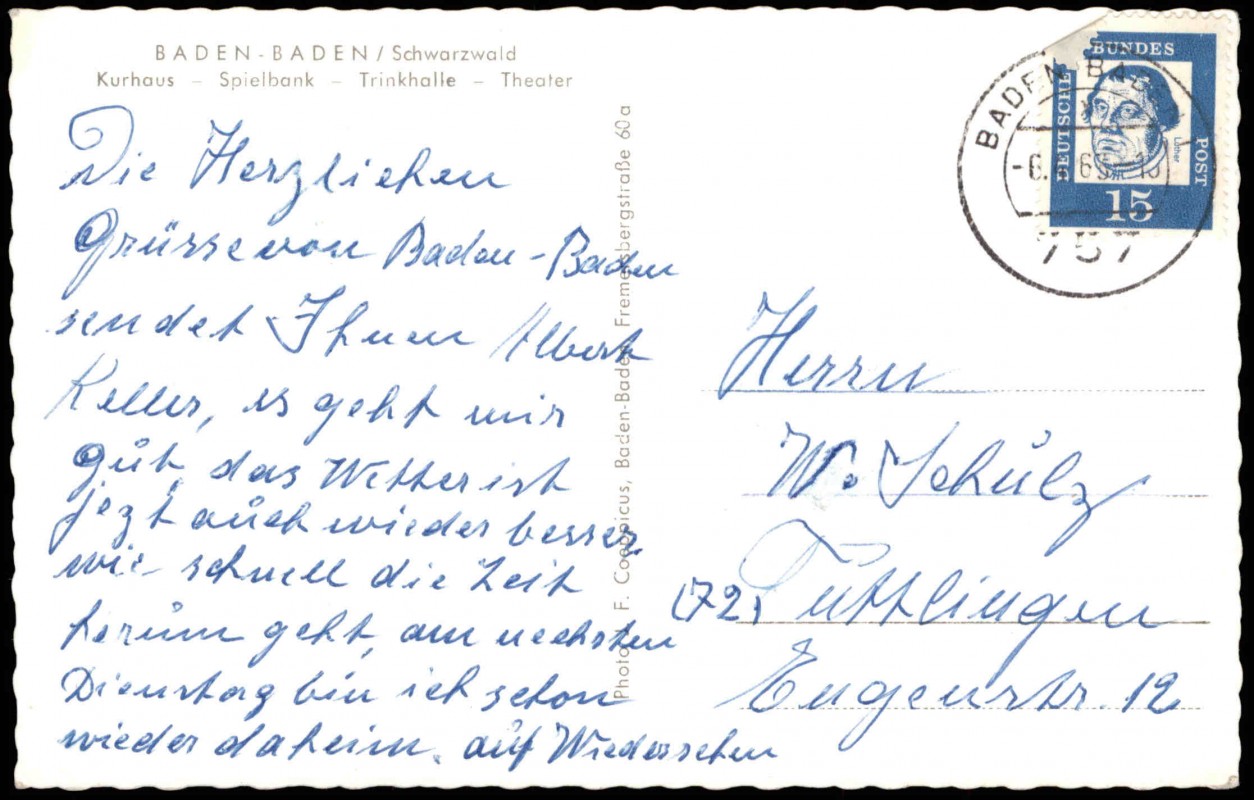 BADEN-BADEN / Schwarzwald
Kurhaus – Spielbank – Trinkhalle – Theater
Die Herzliehen
Grüsse von Baden-Baden
sendet Ihnen Albert
Keller, es geht mir
gut, das Wetter ist
jezt auch wieder besser,
wie schnell die Zeit
herum geht, am nechsten
Dienstag bin ich schon
wieder daheim. auf Wiedersehen
Photo F. Coppicus, Baden-Baden, Fremersbergstraße 60a
BADEN-BADEN
-6. 65-
757
DEUTSCHE
BUNDES
POST
Luther
15
Herrn
W. Schulz
(72) Tuttlingen
Eugenstr. 12